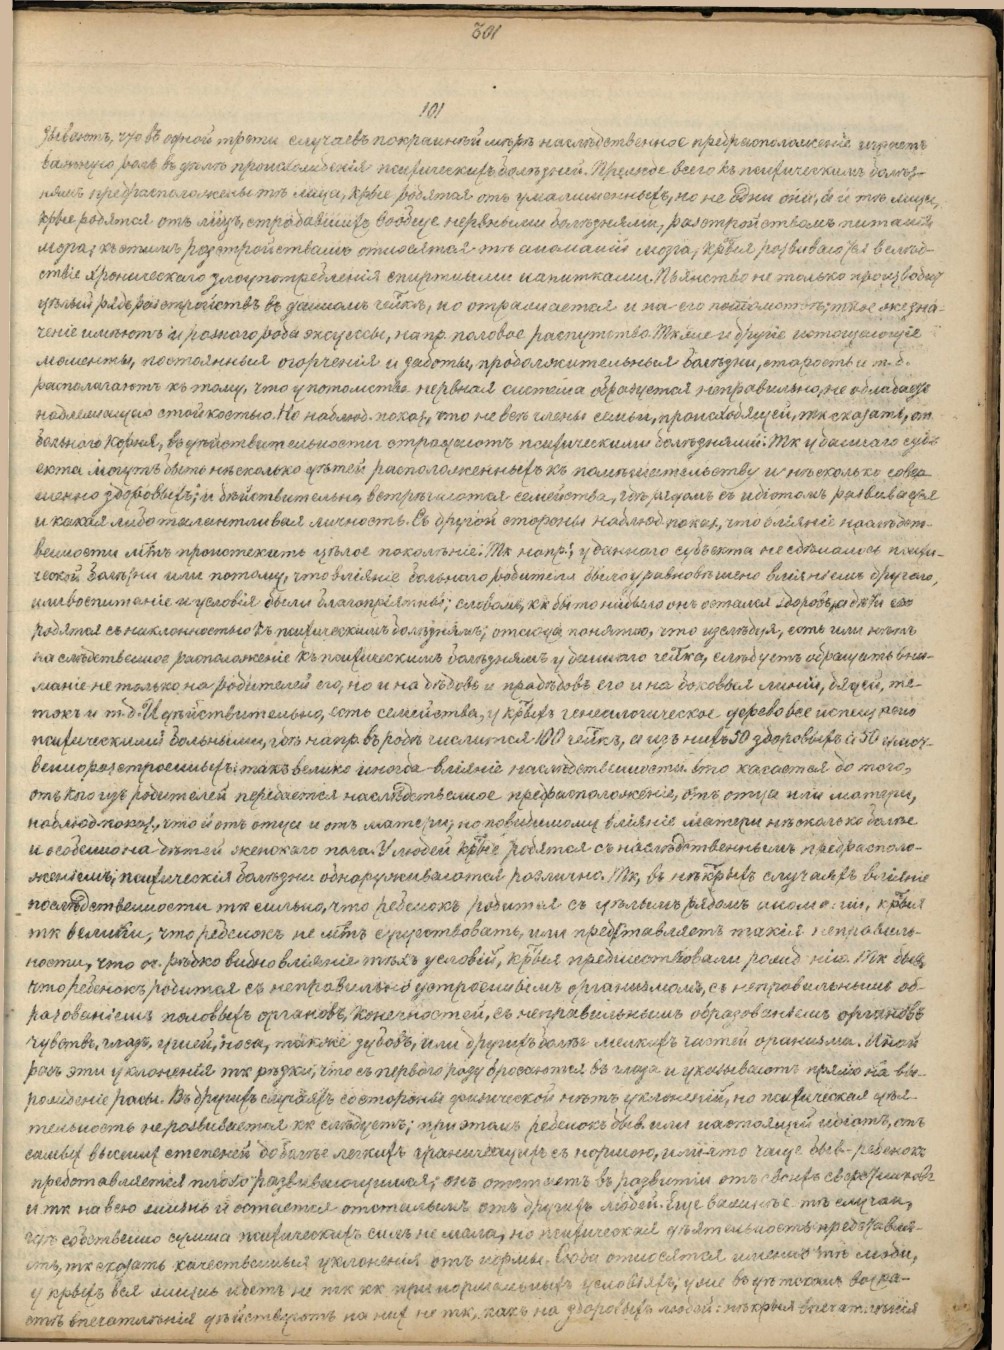 301
101
зываютъ, что въ одной трети случаевъ покрайнѣй мѣрѣ наслѣдственное предрасположеніе играетъ
важную роль въ дѣлѣ происхожденія психическихъ болѣзней. Прежде всего къ психическимъ болѣз-
нямъ предрасположены тѣ лица, кр͞ые родятся отъ умалишенныхъ, но не одни они, а и тѣ лица,
кр͞ые родятся отъ лицъ, страдавшихъ вообще нервными болѣзнями, разстройствомъ питанія
мозга; къ этимъ разстройствамъ относятся тѣ аномаліи мозга, кр͞ыя развиваются вслѣд-
ствіе хроническаго злоупотребленія спиртными напитками. Пьянство не только производитъ
цѣлый рядъ разстройствъ въ данномъ че͞ткѣ, но отражается и на его потомствѣ; такое же зна-
ченіе имѣютъ и разнаго рода эксцессы, напр. половое распутство. Тк͞же и другіе истощающіе
моменты, постоянныя огорченія и заботы, продолжительныя болѣзни, старость и т. д.
располагаютъ къ тому, что у потомства нервная система образуется неправильно, не обладаетъ
надлежащею стойкостью. Но наблюд. показ., что не всѣ члены семьи, происходящей, тк сказать, отъ
больного корня, въ дѣйствительности страдаютъ психическими болѣзнями. Тк у даннаго субъ-
екта могутъ быть нѣсколько дѣтей расположенныхъ къ помѣшательству и нѣсколько совер-
шенно здоровыхъ; и дѣйствительно встрѣчаются семейства, гдѣ рядомъ съ идіотомъ развивается
и какая либо талантливая личность. Съ другой стороны наблюд. показ., что вліяніе наслѣдст-
венности м͞тъ протекать цѣлое поколѣніе. Тк напр., у даннаго субъекта не сдѣлалось психи-
ческой болѣзни или потому, что вліяніе больного родителя было уравновѣшено вліяніемъ другого,
или воспитаніе и условія были благопріятны; словомъ, кк бы то ни было онъ остался здоровъ, а дѣти его
родятся съ наклонностью къ психическимъ болѣзнямъ; отсюда понятно, что изслѣдуя, есть или нѣтъ
наслѣдственное расположеніе къ психическимъ болѣзнямъ у даннаго че͞тка, слѣдуетъ обращать вни-
маніе не только на родителей его, но и на дѣдовъ и прадѣдовъ его и на боковыя линіи, дядей, те-
токъ и т. д. И дѣйствительно, есть семейства, у кр͞ыхъ генеалогическое дерево все испещрено
психическими больными, гдѣ напр. въ родѣ числится 100 че͞ткъ, а изъ нихъ 50 здоровыхъ и 50 умст-
венно разстроенныхъ: такъ велико иногда вліяніе наслѣдственности. Что касается до того,
отъ кого изъ родителей передается наслѣдственное предрасположеніе, отъ отца или матери,
наблюд. показ., что и отъ отца и отъ матери; но повидимому вліяніе матери нѣсколько болѣе
и особенно на дѣтей женскаго пола. У людей кр͞ые родятся съ наслѣдственнымъ предрасполо-
женіемъ, психическія болѣзни обнаруживаются различно. Тк, въ нѣкр͞ыхъ случаяхъ вліяніе
послѣдственности тк сильно, что ребенокъ родится съ цѣлымъ рядомъ аномалій, кр͞ыя
тк велики, что ребенокъ не м͞тъ существовать, или представляетъ такія неправиль-
ности, что оч. рѣдко видно вліяніе тѣхъ условій, кр͞ыя предшествовали рожденію. Тк быв.,
что ребенокъ родится съ неправильно устроеннымъ организмомъ, съ неправильнымъ об-
разованіемъ половыхъ органовъ, конечностей, съ неправильнымъ образованіемъ органовъ
чувствъ, глазъ, ушей, носа, также зубовъ, или другихъ болѣе мелкихъ частей организма. Иной
разъ эти уклоненія тк рѣзки, что съ перваго разу бросаются въ глаза и указываютъ прямо на вы-
рожденіе расы. Въ другихъ случаяхъ со стороны физической нѣтъ уклоненій, но психическая дѣя-
тельность не развивается кк слѣдуетъ; при этомъ ребенокъ быв. или настоящій идіотъ, отъ
самыхъ высшихъ степеней до болѣе легкихъ граничащихъ съ нормою, или что чаще быв. ребенокъ
представляется плохо развивающимся; онъ отстаетъ въ развитіи отъ своихъ сверстниковъ
и тк на всю жизнь и остается отсталымъ отъ другихъ людей. Еще важнѣе тѣ случаи,
гдѣ собственно сумма психическихъ силъ не мала, но психическая дѣятельность представля-
етъ, тк сказать качественныя уклоненія отъ нормы. Сюда относятся именно тѣ люди,
у кр͞ыхъ вся жизнь идетъ не тк кк при нормальныхъ условіяхъ; уже въ дѣтскомъ возра-
стѣ впечатлѣнія дѣйствуютъ на нихъ не тк, какъ на здоровыхъ людей: нѣкр͞ыя впечатлѣнія